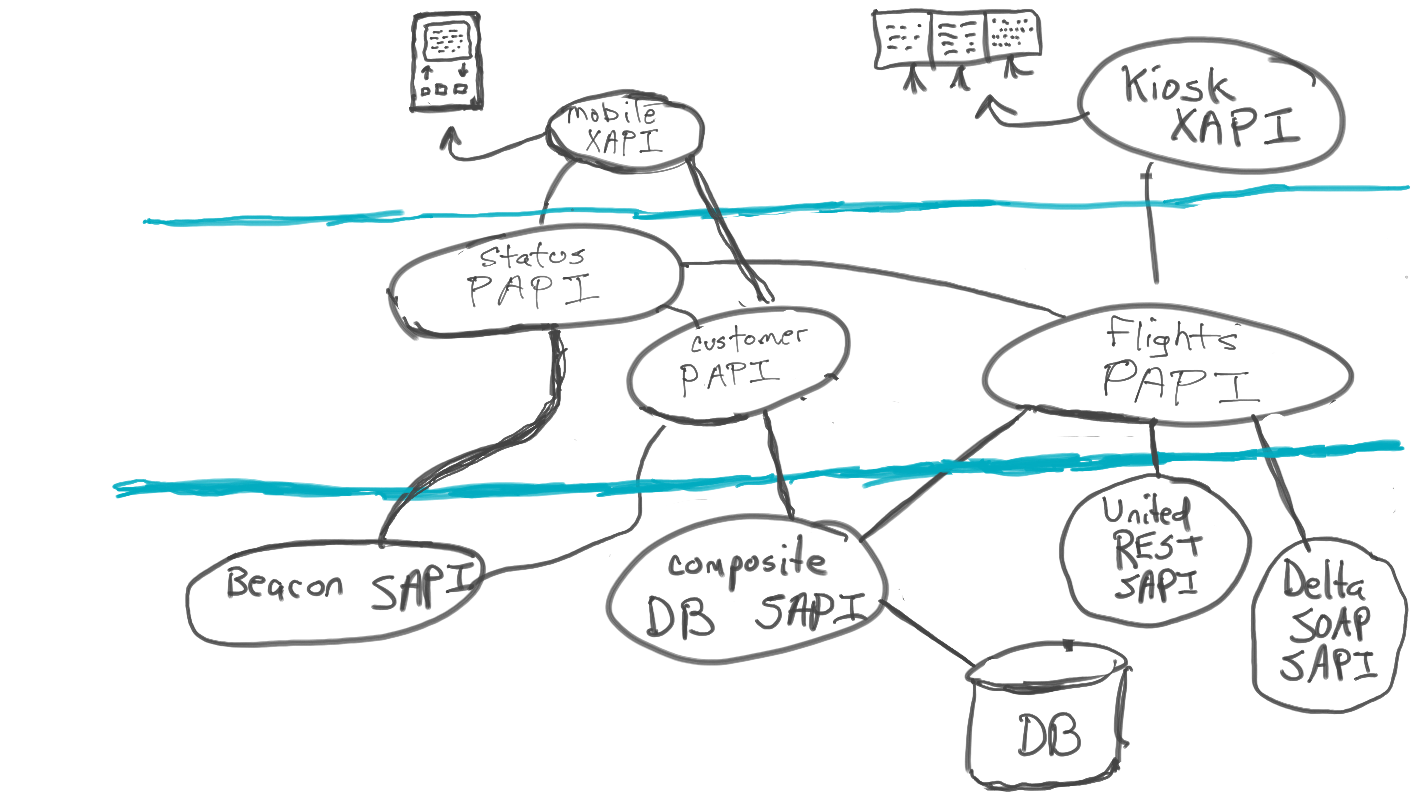 mobile
XAPI
Kiosk
XAPI
Status
PAPI
customer
PAPI
Flights
PAPI
Beacon SAPI
composite
DB SAPI
United
REST
SAPI
Delta
SOAP
SAPI
DB